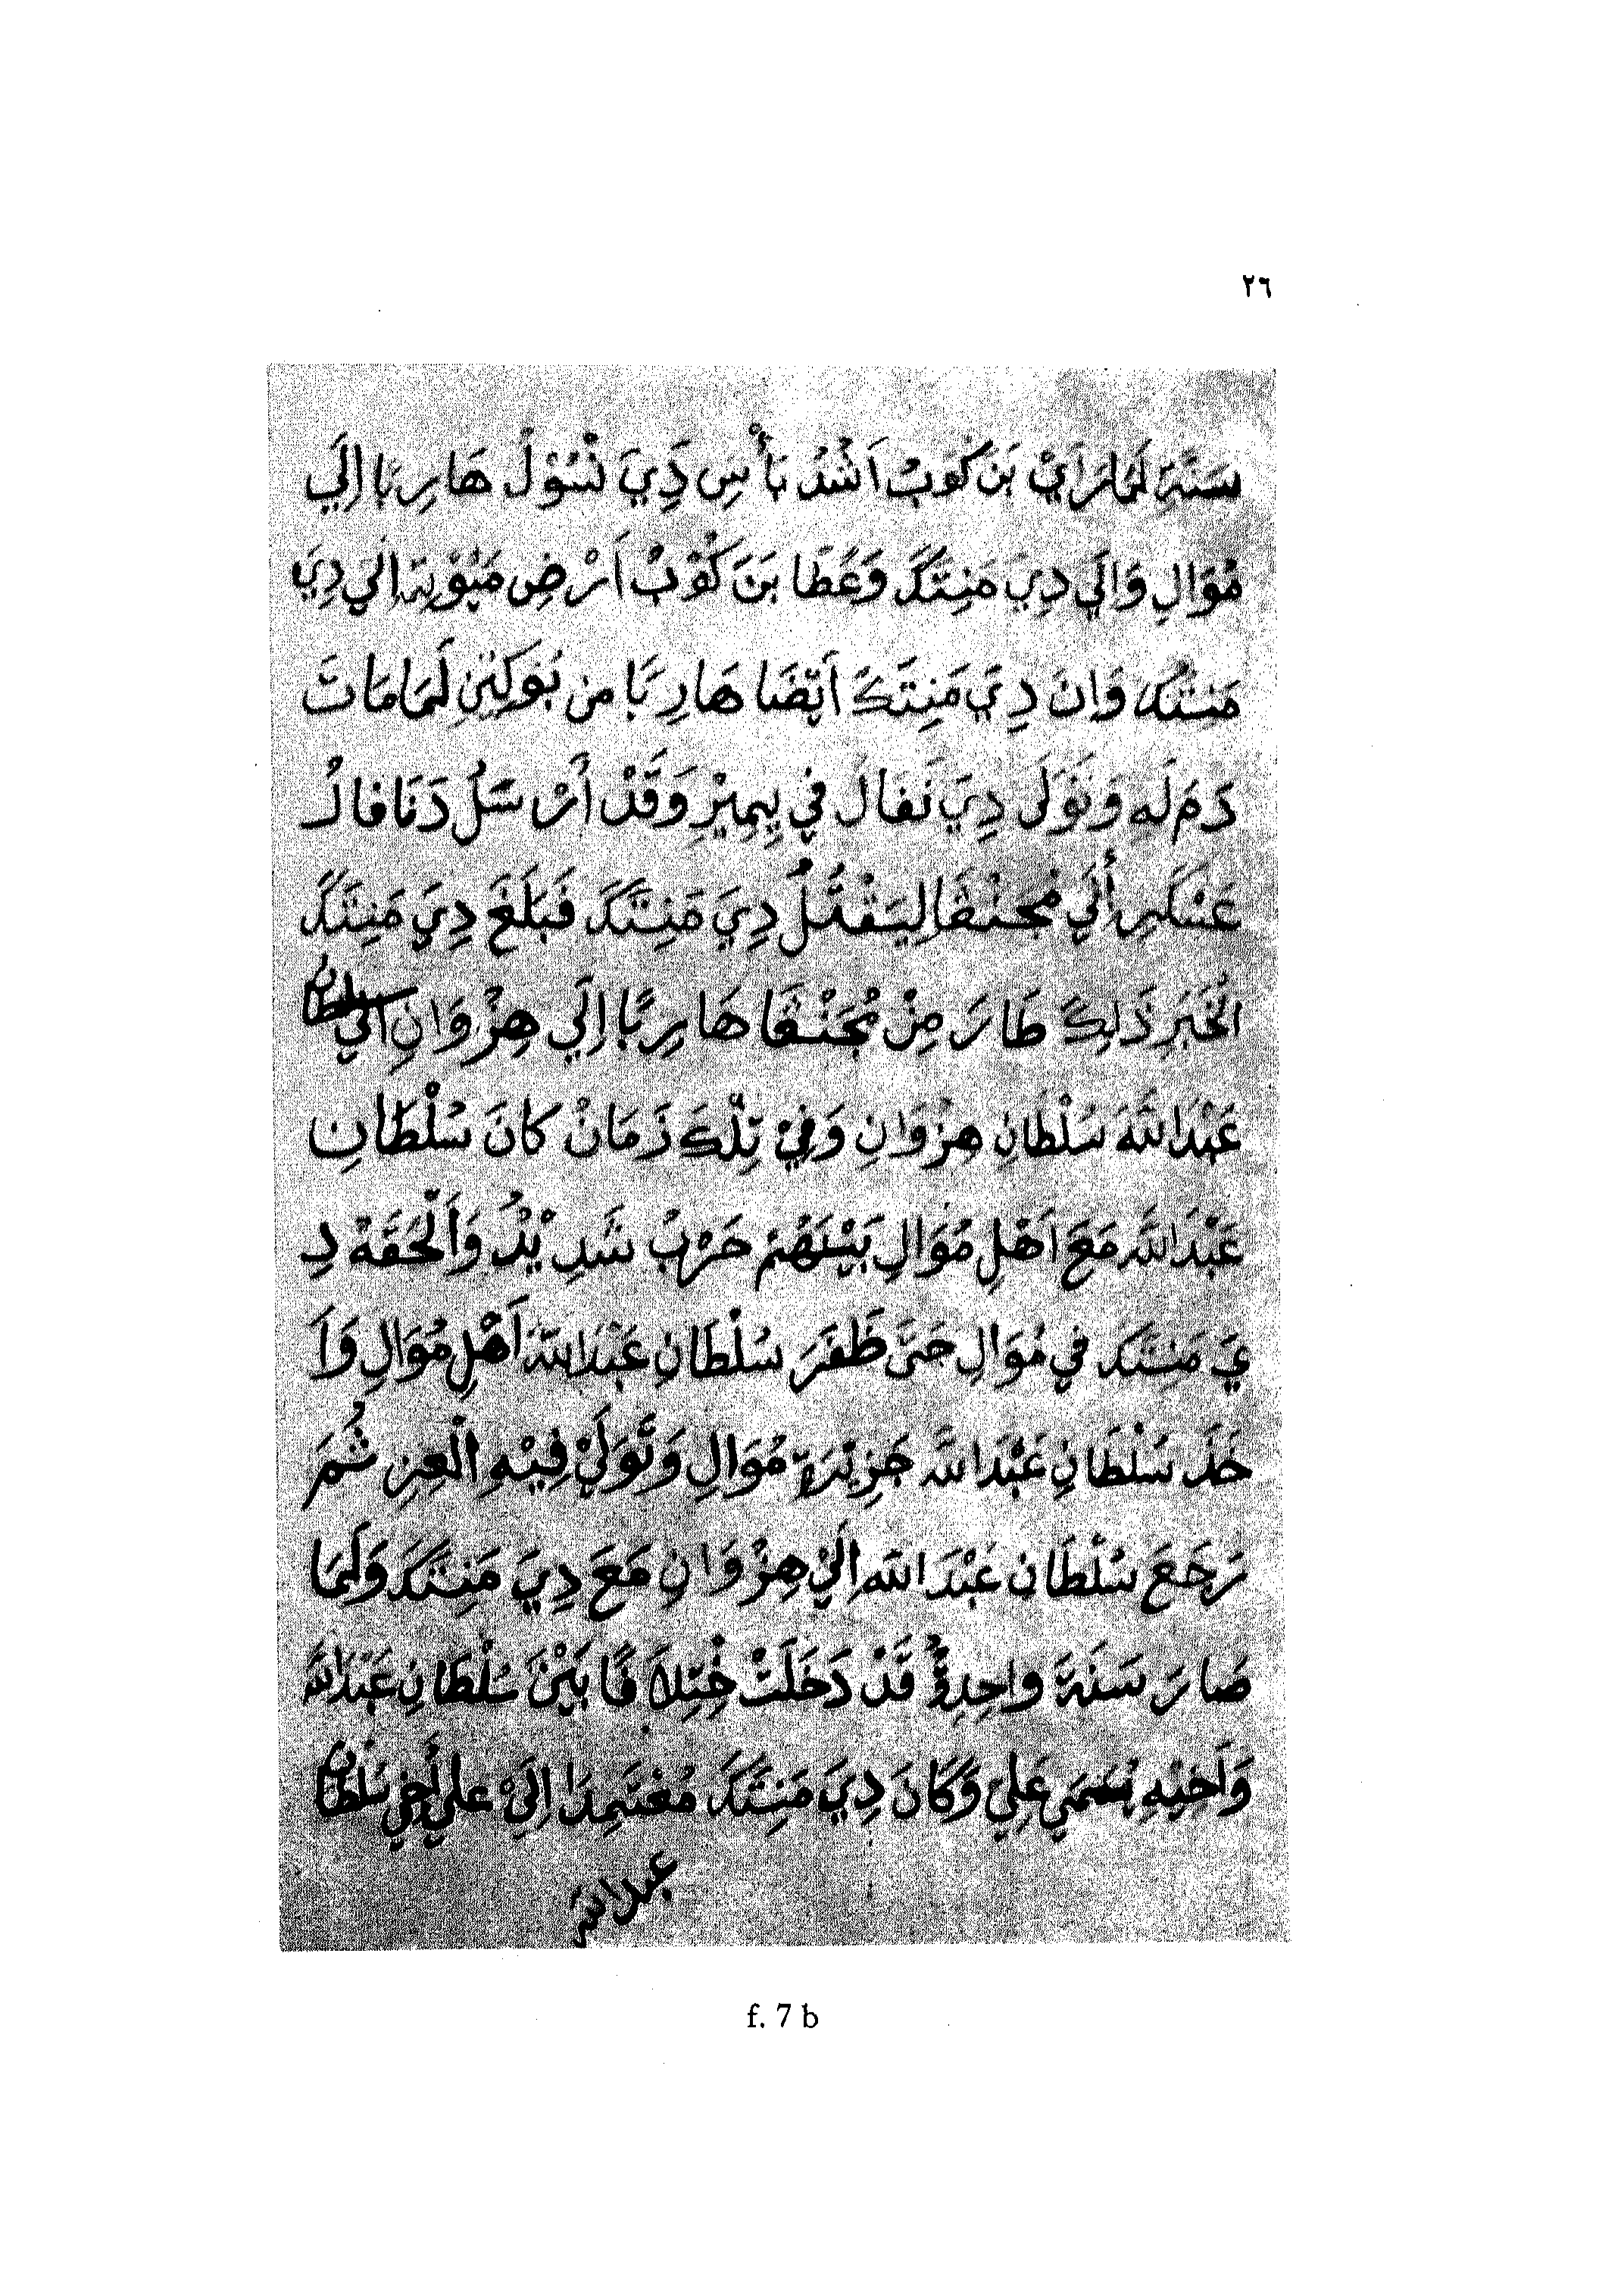 ٢٦
سَنَةِ لَمَارَاَيْ بَنَ كُوَبُ اَشْدُ بَأْسِ دِيَ نْسُوْلْ هَارِبًا اِلَي
مُوَالِ وَاِلَي دِيَ مَنِتَكَ وَعَطَا بَنَ كُوْبُ اَرْضِ اِلَي دِيَ
مَنِتَكَ وَاِنَ دِيَ مَنِتَكَ اَيْضَا هَارِبًا مِن لَمَامَاتَ
دَمَ لَهِ وَتَوَلَى دِيَ نَفَالَ فِي وَقَدْ اَرْسَلُ دَنَافَالُ
عَسْكَرِ اُلَي مُجَنْقَا لِيَقْتُلُ دِيَ مَنِتَكَ فَبَلَغَ دِيَ مَنِتَكَ
الْخَبَرِ ذَلِكَ طَارَ مِنْ مُجَنْقَا هَارِبًا اِلَي هِزْوَانِ اَلَي سلطان
عَبْدَاللهَ سُلْطَانِ هِزْوَانِ وَفِيْ تِلْكَ زَمَانُ كَانَ سُلْطَانِ
عَبْدَاللهَ مَعَ اَهْلِ مُوَالِ بَيْنَهُمْ حَرْبُ شَدِيْدُ وَاَلْحَقَهْ دِ
يَ مَنِتَكَ فِي مُوَالِ حَتَى ظَفَرَ سُلْطَانِ عَبْدَاللهَ اَهْلِ مُوَالِ وَاَ
خَذَ سُلْطَانِ عَبْدَاللهَ جَزِيْرَةِ مُوَالِ وَتَوَلَيْ فِيْهِ اَلْعِزِ ثُمَ
رَجَعَ سُلْطَانِ عَبْدَاللهَ اِلَيْ هِزْوَانِ مَعَ دِيَ مَنِتَكَ وَلَمَا
صَارَ سَنَةَ وَاحِدِةُ قَدْ دَخَلَتْ خْتِلَافَا بَيْنَ سُلْطَانِ عَبْدَاللهَ
وَاَخِيْهِ يُسَمَي عَلِيَ وَكَانَ دِيَ مَنِتَكَ مُعْتَمِدَا اِلَيْ عَلِي اَخِي سُلْطَان
عبدالله
f. 7 b